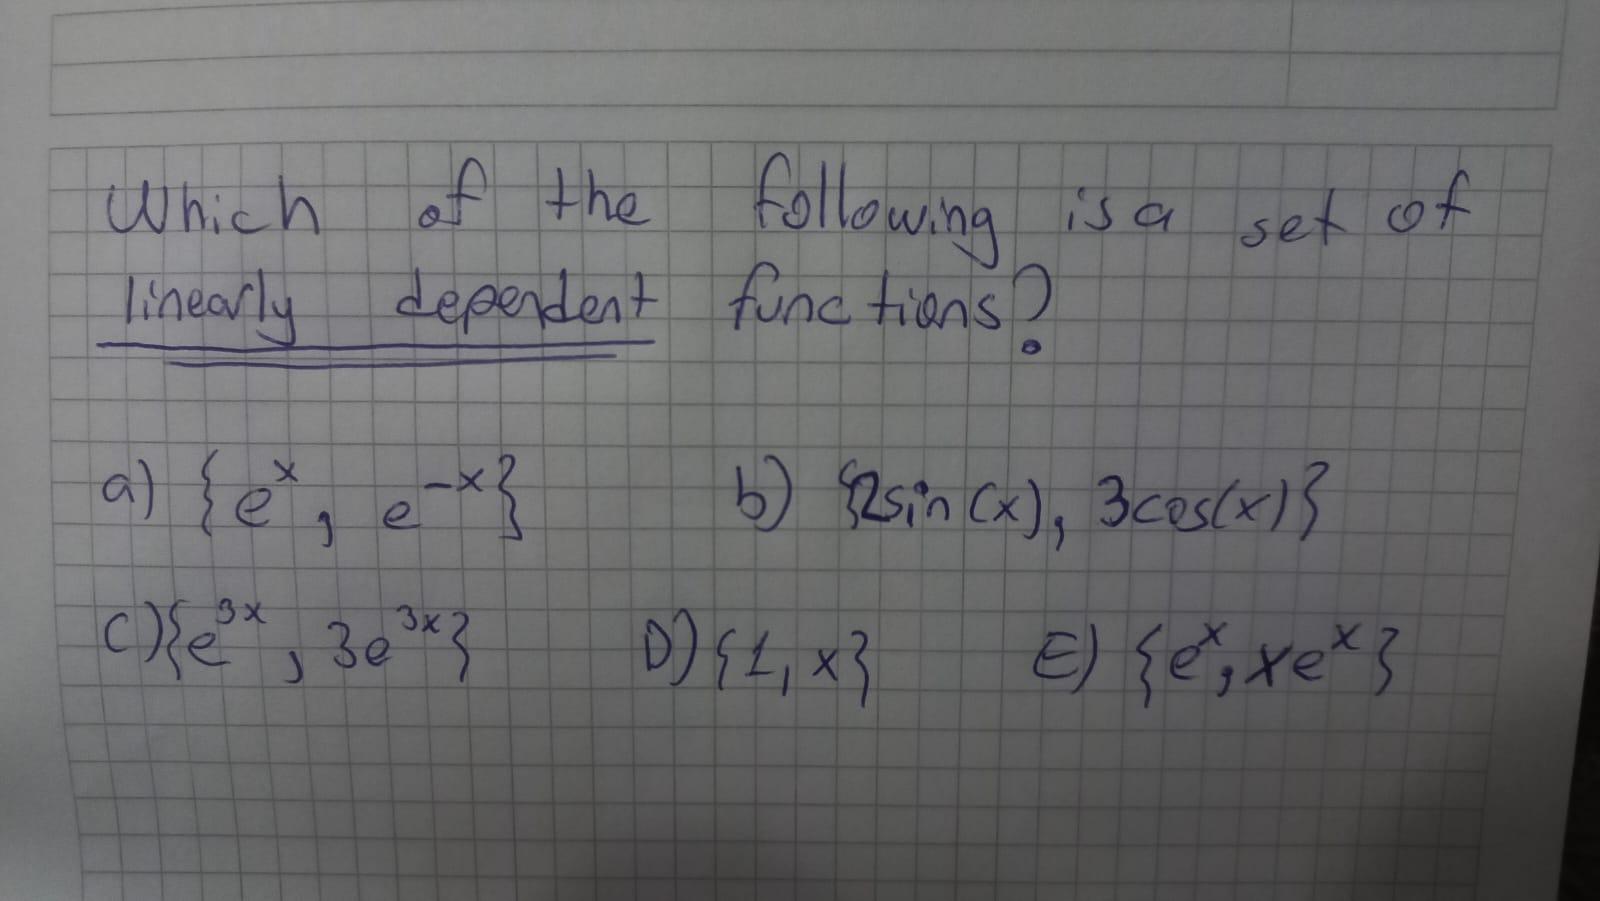 Which of the following is a set of
linearly dependent functions?
a) {e^x, e^-x} b) {2sin(x), 3cos(x)}
c) {e^3x, 3e^3x} D) {1, x} E) {e^x, xe^x}